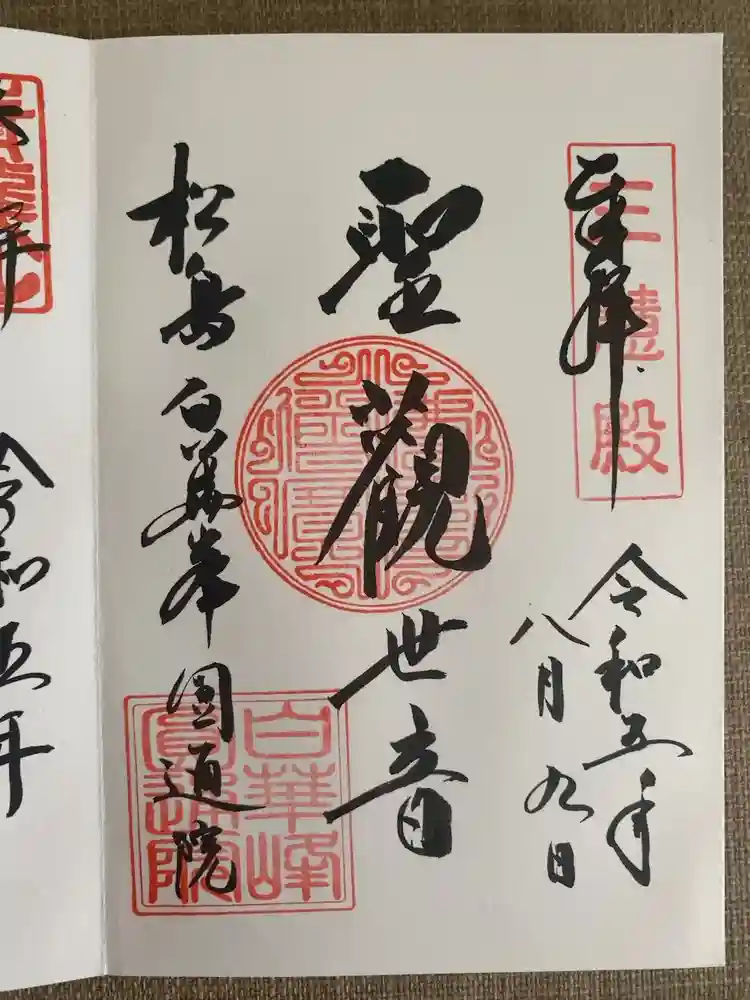 奉拝
三慧殿
令和五年
八月九日
聖観世音
松島白華峰圓通院
白華峰
圓通院
令和五年